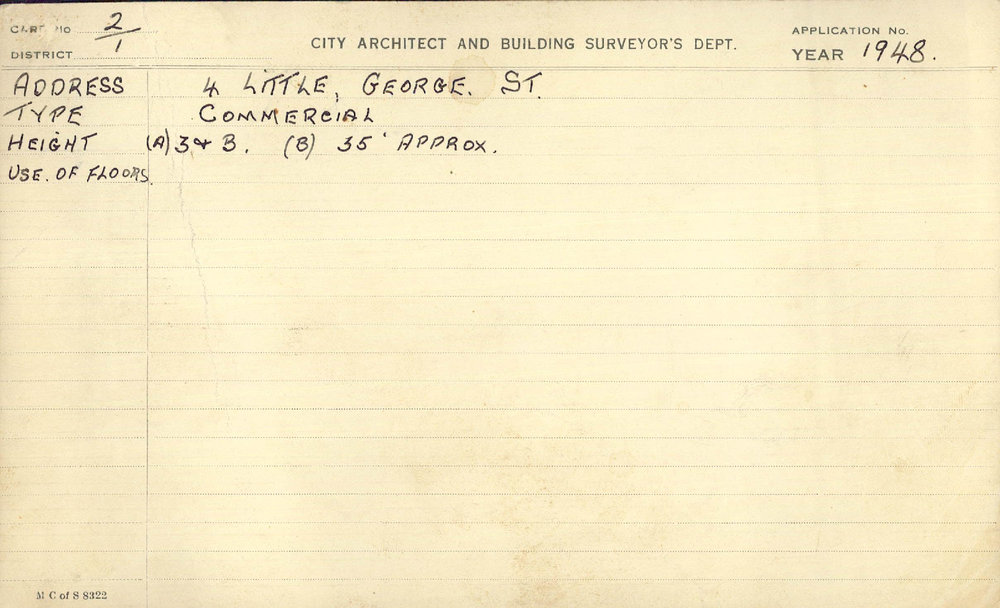 CARD No 2/1
DISTRICT
CITY ARCHITECT AND BUILDING SURVEYOR'S DEPT.
APPLICATION No.
YEAR 1948.
ADDRESS 4 LITTLE, GEORGE. ST.
TYPE COMMERCIAL
HEIGHT (A) 3 & B. (B) 35' APPROX.
USE. OF FLOORS.
M C of S 8322